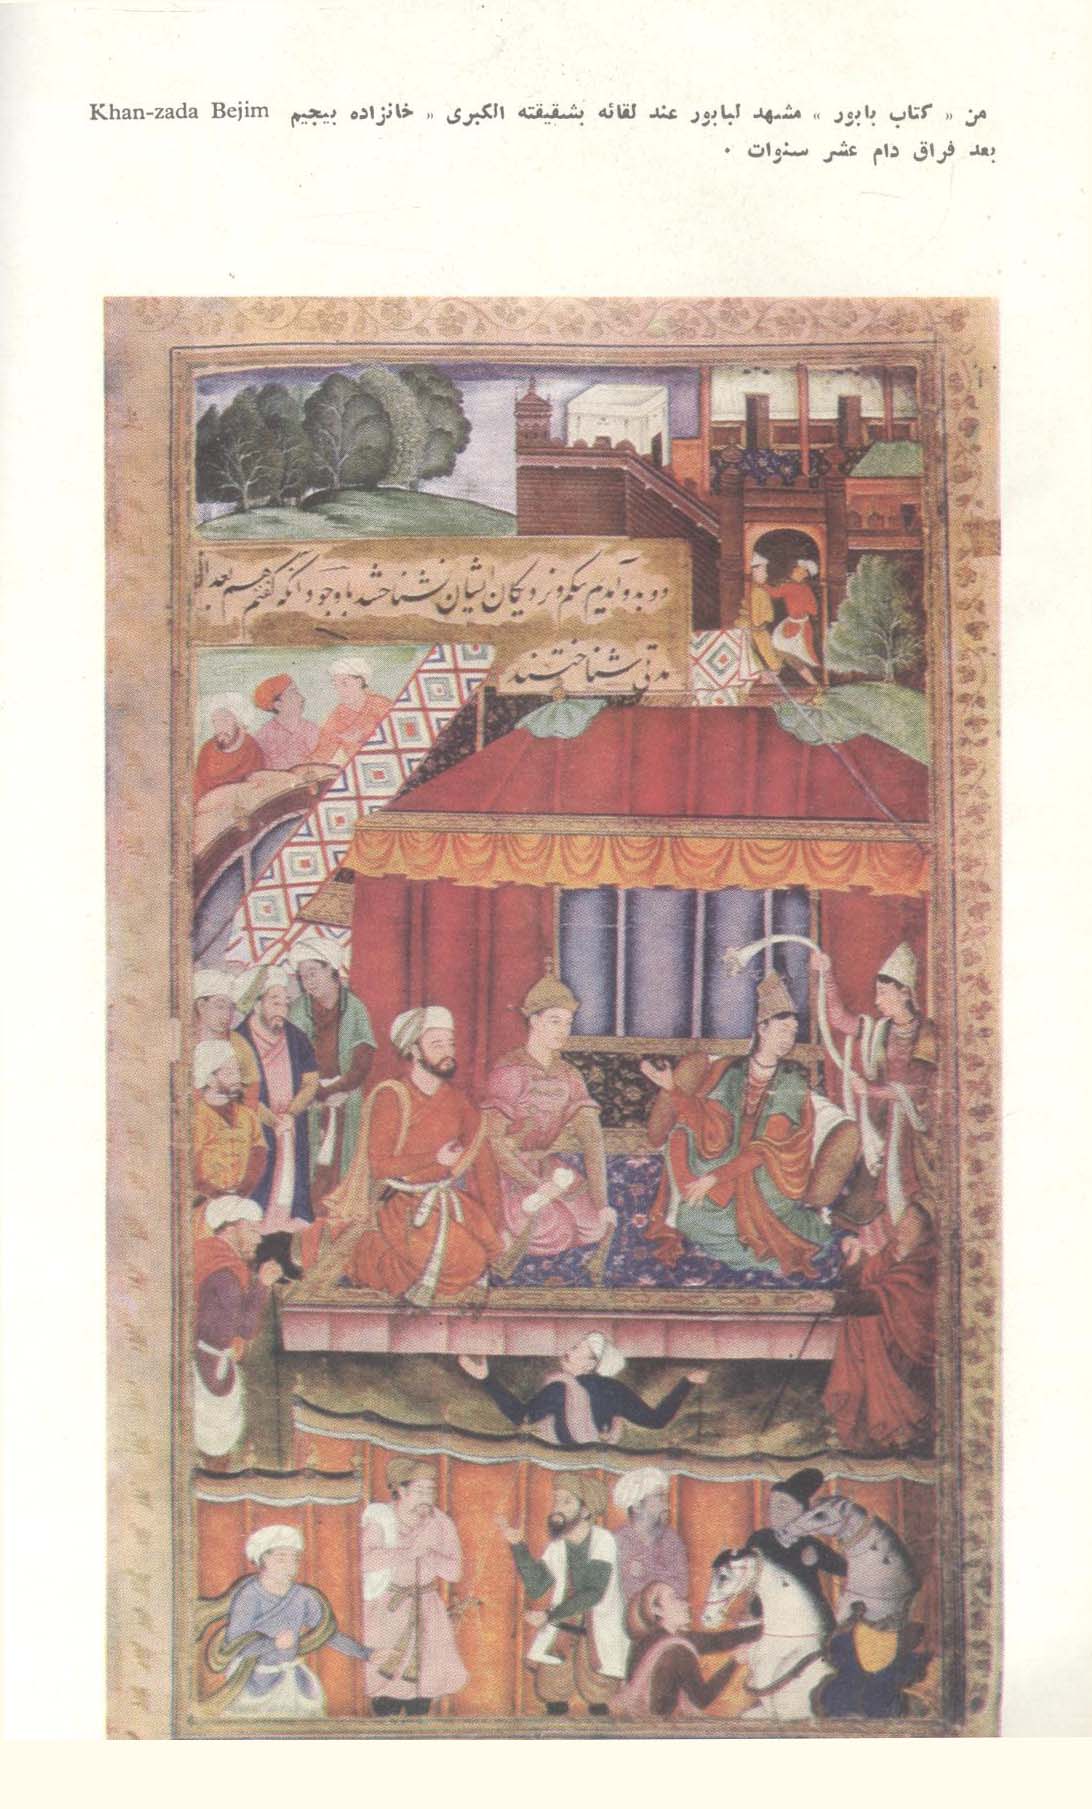 من « كتاب بابور » مشهد لبابور عند لقائه بشقيقته الكبرى « خانزاده بيجيم Khan-zada Bejim
بعد فراق دام عشر سنوات ٠
دو بدو آمدیم بیکم و نزدیکان ایشان نشناختند باوجود آنکه گفتم هم بعد از
مدتی شناختند